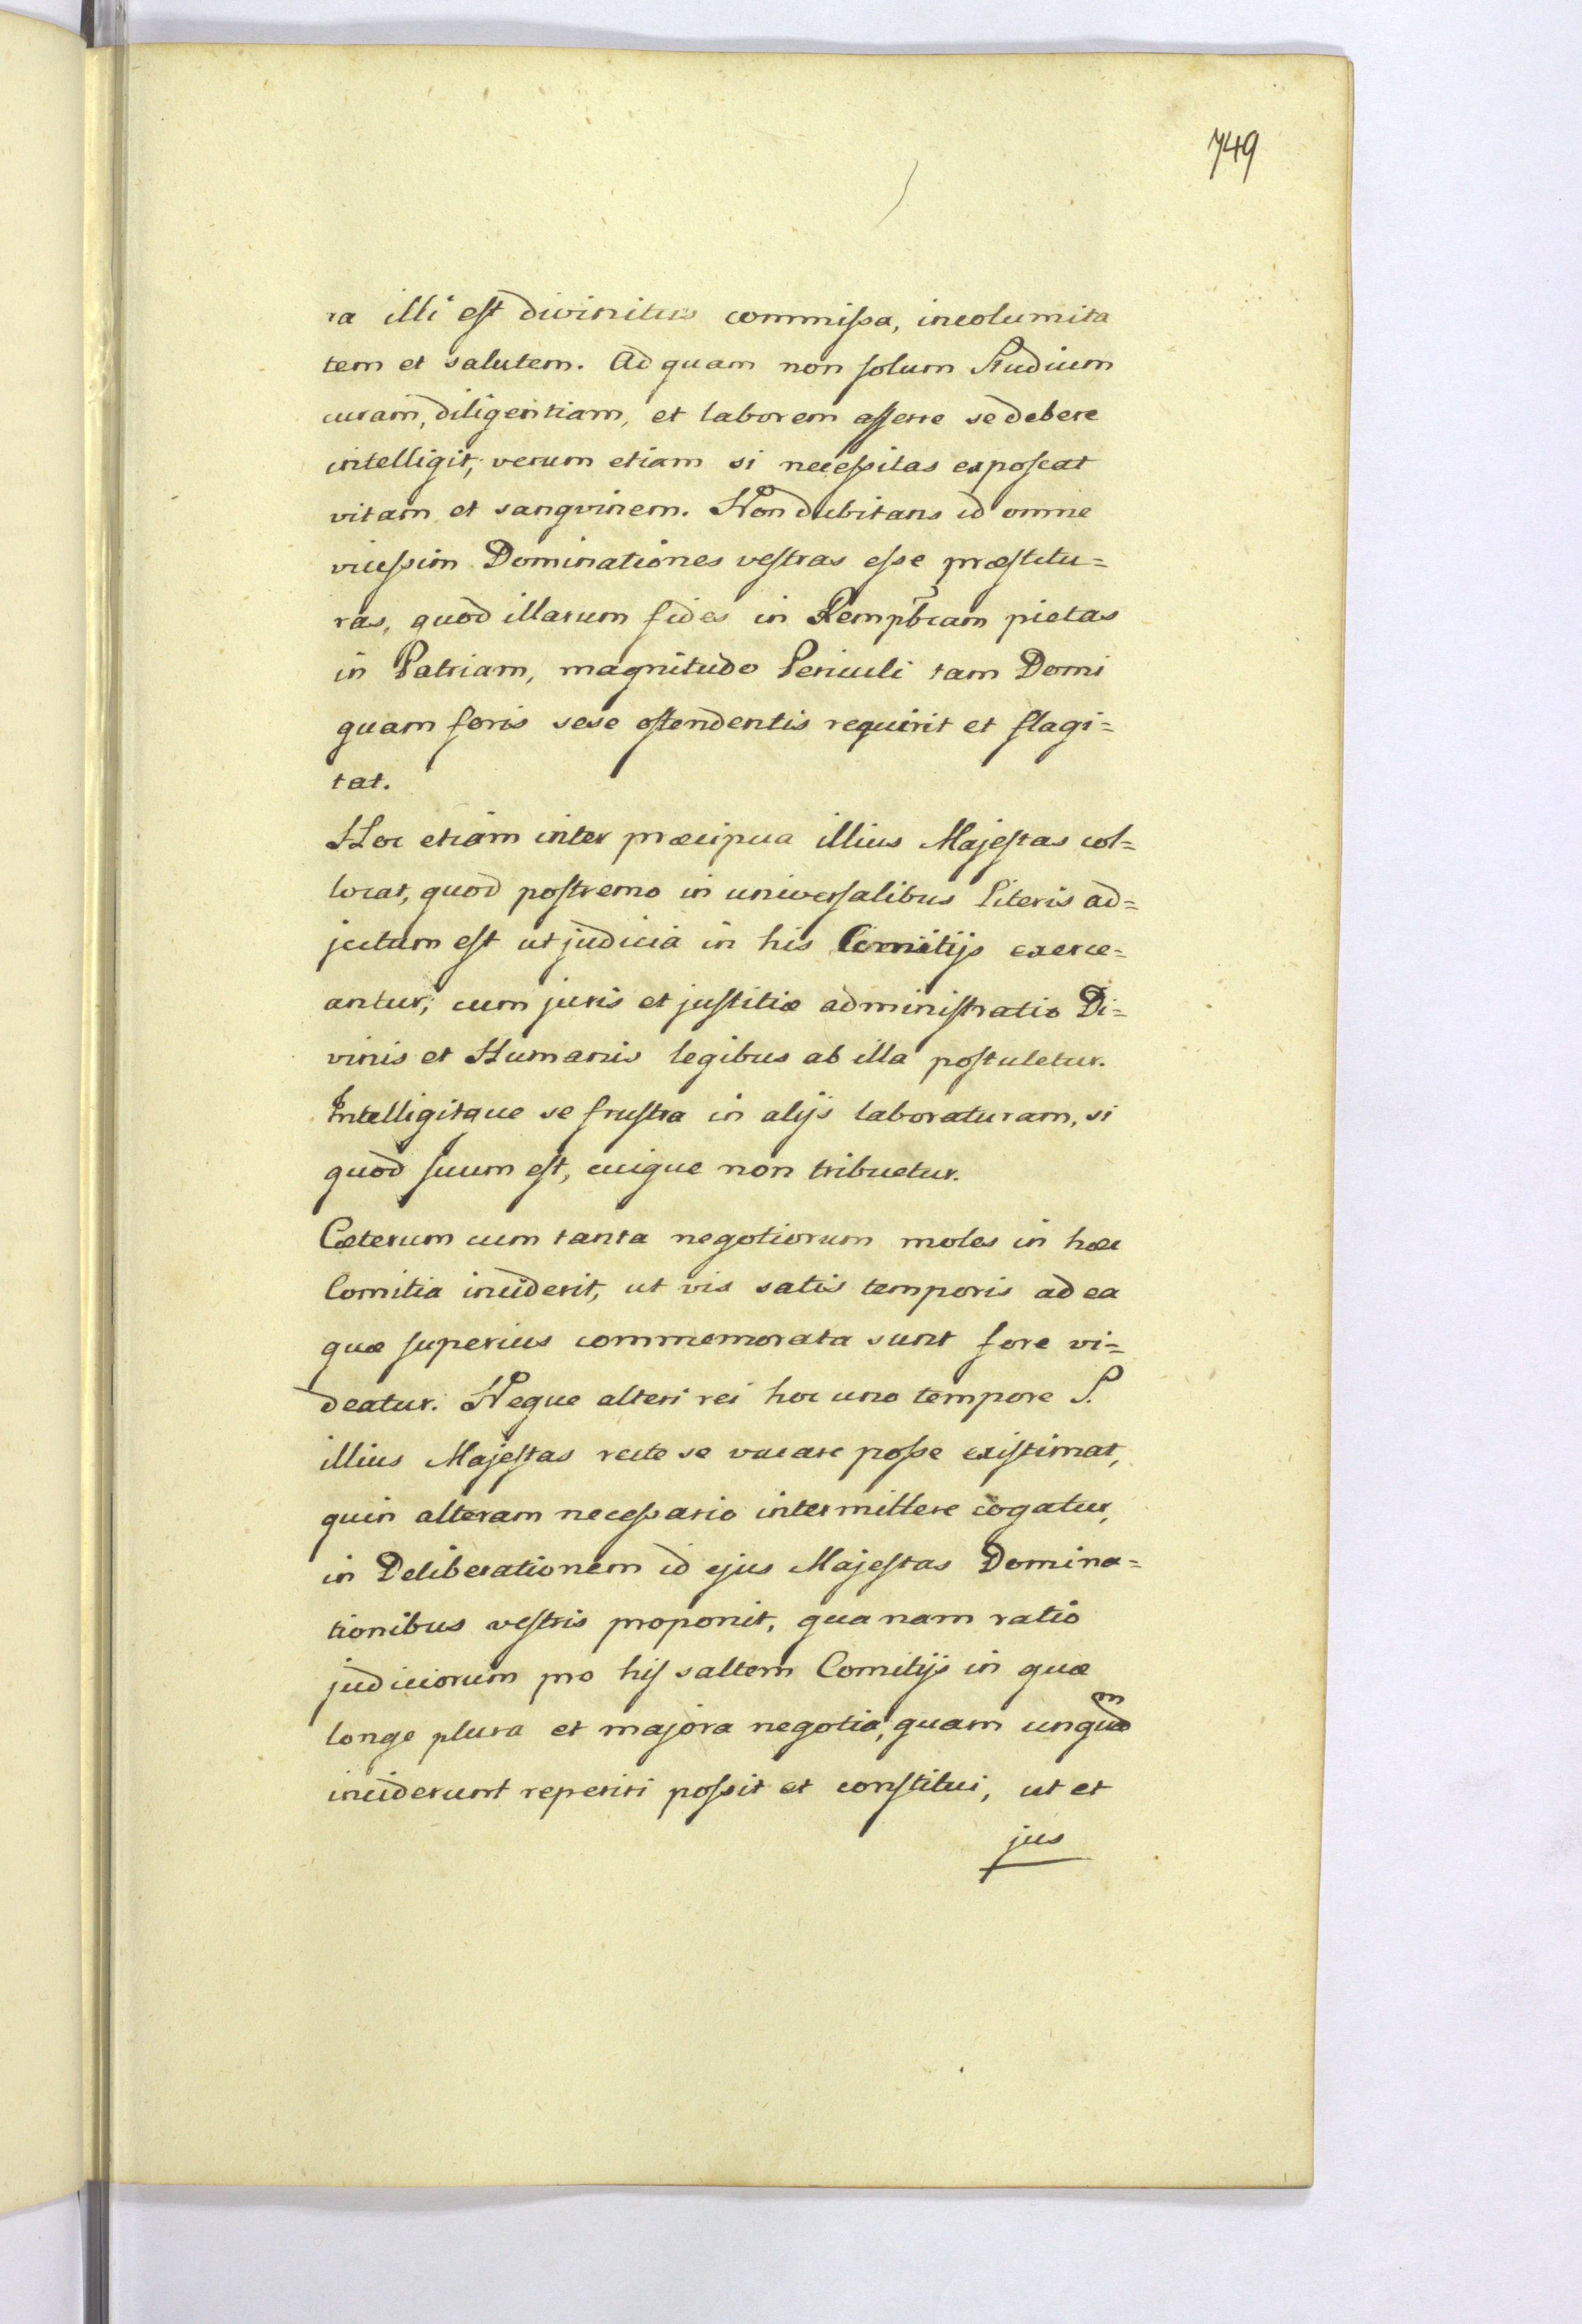 749
ra illi est divinitus commissa, incolumita
tem et salutem. Ad quam non solum Studium
curam, diligentiam, et laborem afferre se debere
intelligit, verum etiam si necessitas exposcat
vitam et sangvinem. Non dubitans id omne
vicissim Dominationes vestras esse præstitu=
ras, quod illarum fides in Rempbcam pietas
in Patriam, magnitudo Periculi tam Domi
quam foris sese ostendentis requirit et flagi=
tat.
Hoc etiam inter præcipua illius Majestas col=
locat, quod postremo in universalibus Literis ad=
jectum est ut judicia in his Comitijs exerce=
antur, cum juris et justitiæ administratio Di=
vinis et Humanis legibus ab illa postuletur.
Intelligitque se frustra in alijs laboraturam, si
quod suum est, cuique non tribuetur.
Cæterum cum tanta negotiorum moles in hæc
Comitia inciderit, ut vix satis temporis ad ea
quæ superius commemorata sunt fore vi=
deatur. Neque alteri rei hoc uno tempore S.
illius Majestas recte se vacare posse existimat,
quin alteram necessario intermittere cogatur,
in Deliberationem id ejus Majestas Domina=
tionibus vestris proponit, qua nam ratio
judiciorum pro his saltem Comitijs in quæ
longe plura et majora negotia, quam unquam
inciderunt reperiri possit et constitui, ut et
jus